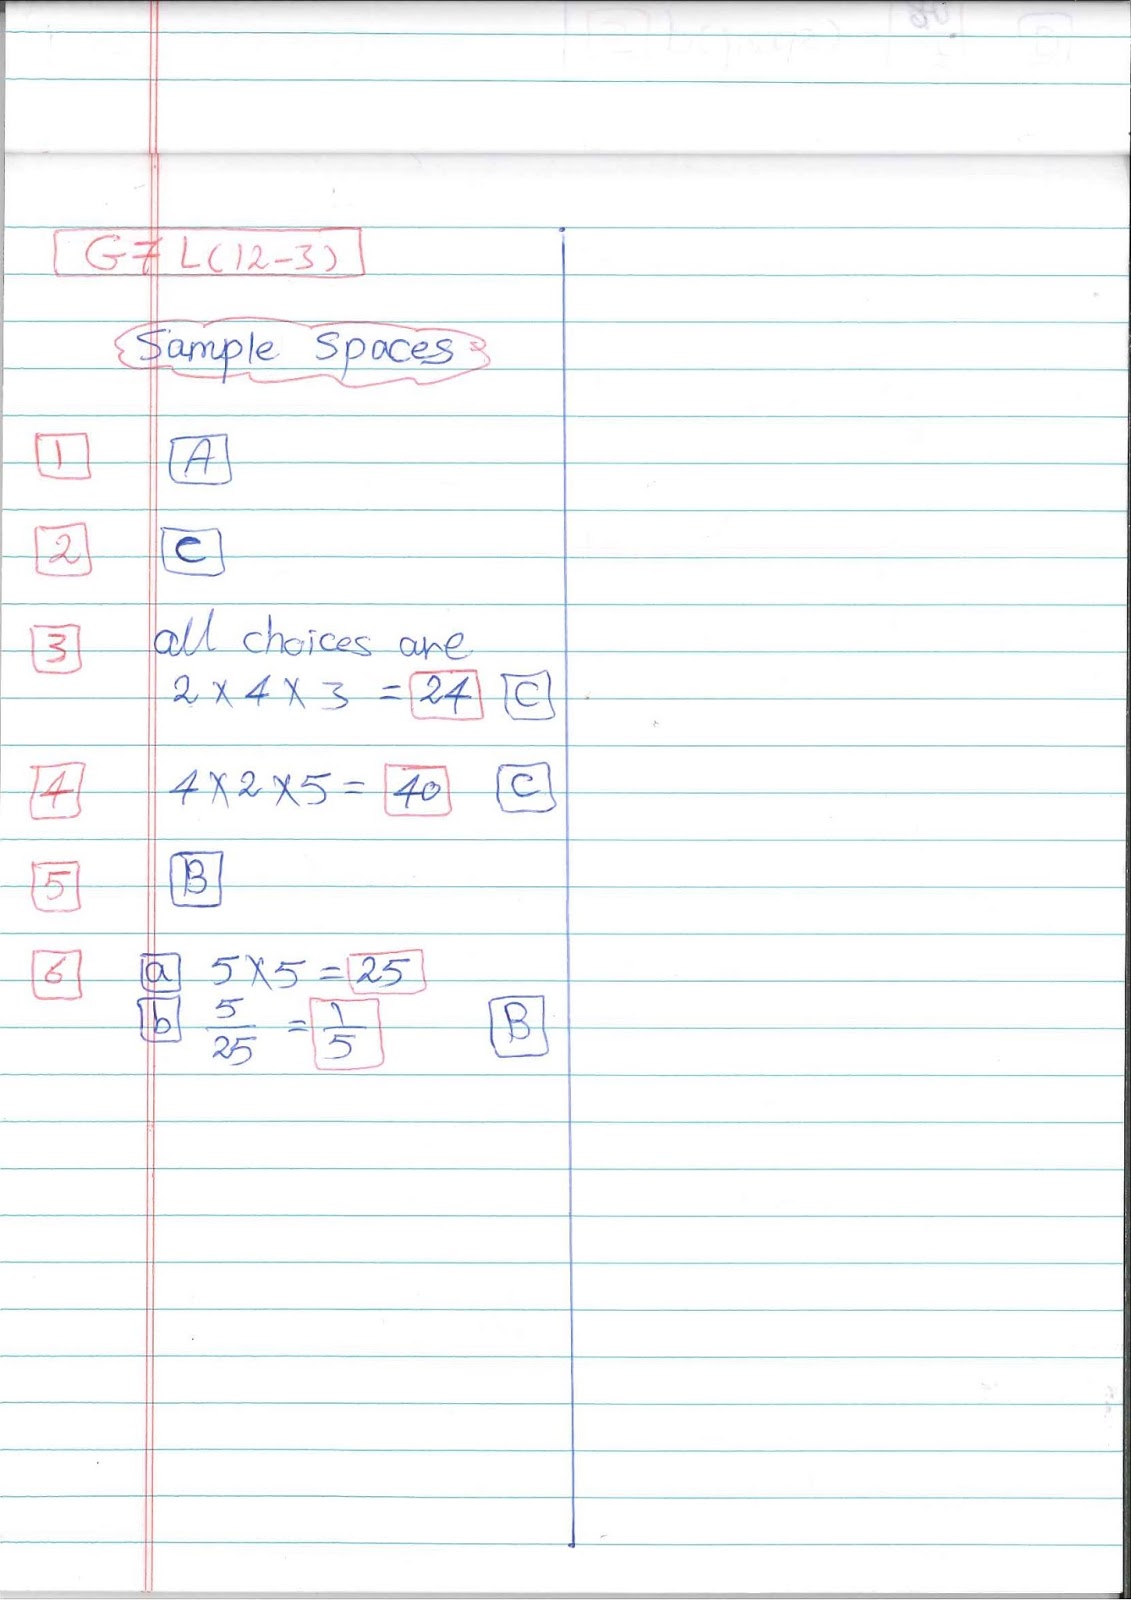 G7 L(12-3)
Sample Spaces
1 A
2 C
3 all choices are
2 × 4 × 3 = 24 C
4 4 × 2 × 5 = 40 C
5 B
6 a 5 × 5 = 25
b 5/25 = 1/5 B